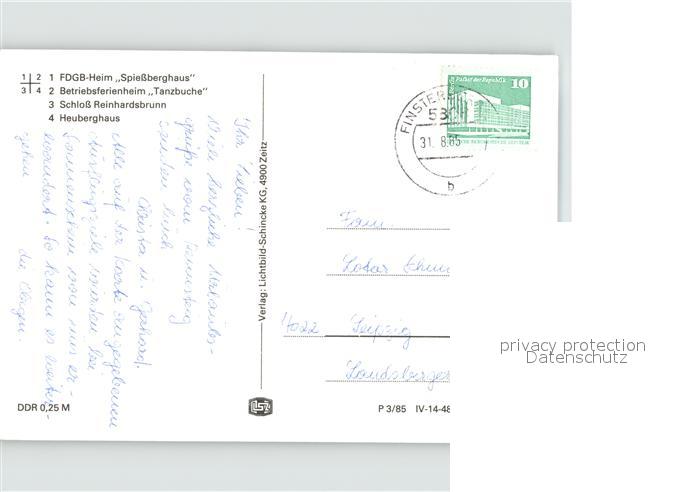 1 2 1 FDGB-Heim „Spießberghaus"
3 4 2 Betriebsferienheim „Tanzbuche"
3 Schloß Reinhardsbrunn
4 Heuberghaus
Ihr Lieben!
Viele herzliche Urlaubs-
grüße vom Rennsteig
senden Euch
Christa u. Gerhard.
Alle auf der Karte angegebenen
Ausflugsziele wurden bei
Sonnenschein von uns er-
wandert. So kann es weiter-
gehen.
Verlag: Lichtbild-Schincke KG, 4900 Zeitz
Palast der Republik
10
FINSTER
31. 8.85
b
Fam.
Lotar
4022 Leipzig
Landsberger
DDR 0,25 M
P 3/85 IV-14-48
privacy protection
Datenschutz